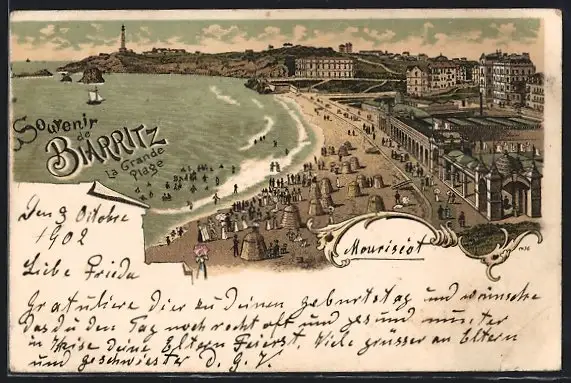 Souvenir
de
BIARRITZ
La Grande
Plage
Den 3 Oktobre
1902
Mouriscot
Liebe Frieda
Gratuliere dier zu deinen geburtstag und wünsche
das du den Tag noch recht oft und gesund und munter
in Kreise deine Eltern Feierst. Viele grüsser an Eltern
und geschwiester d. G. V.